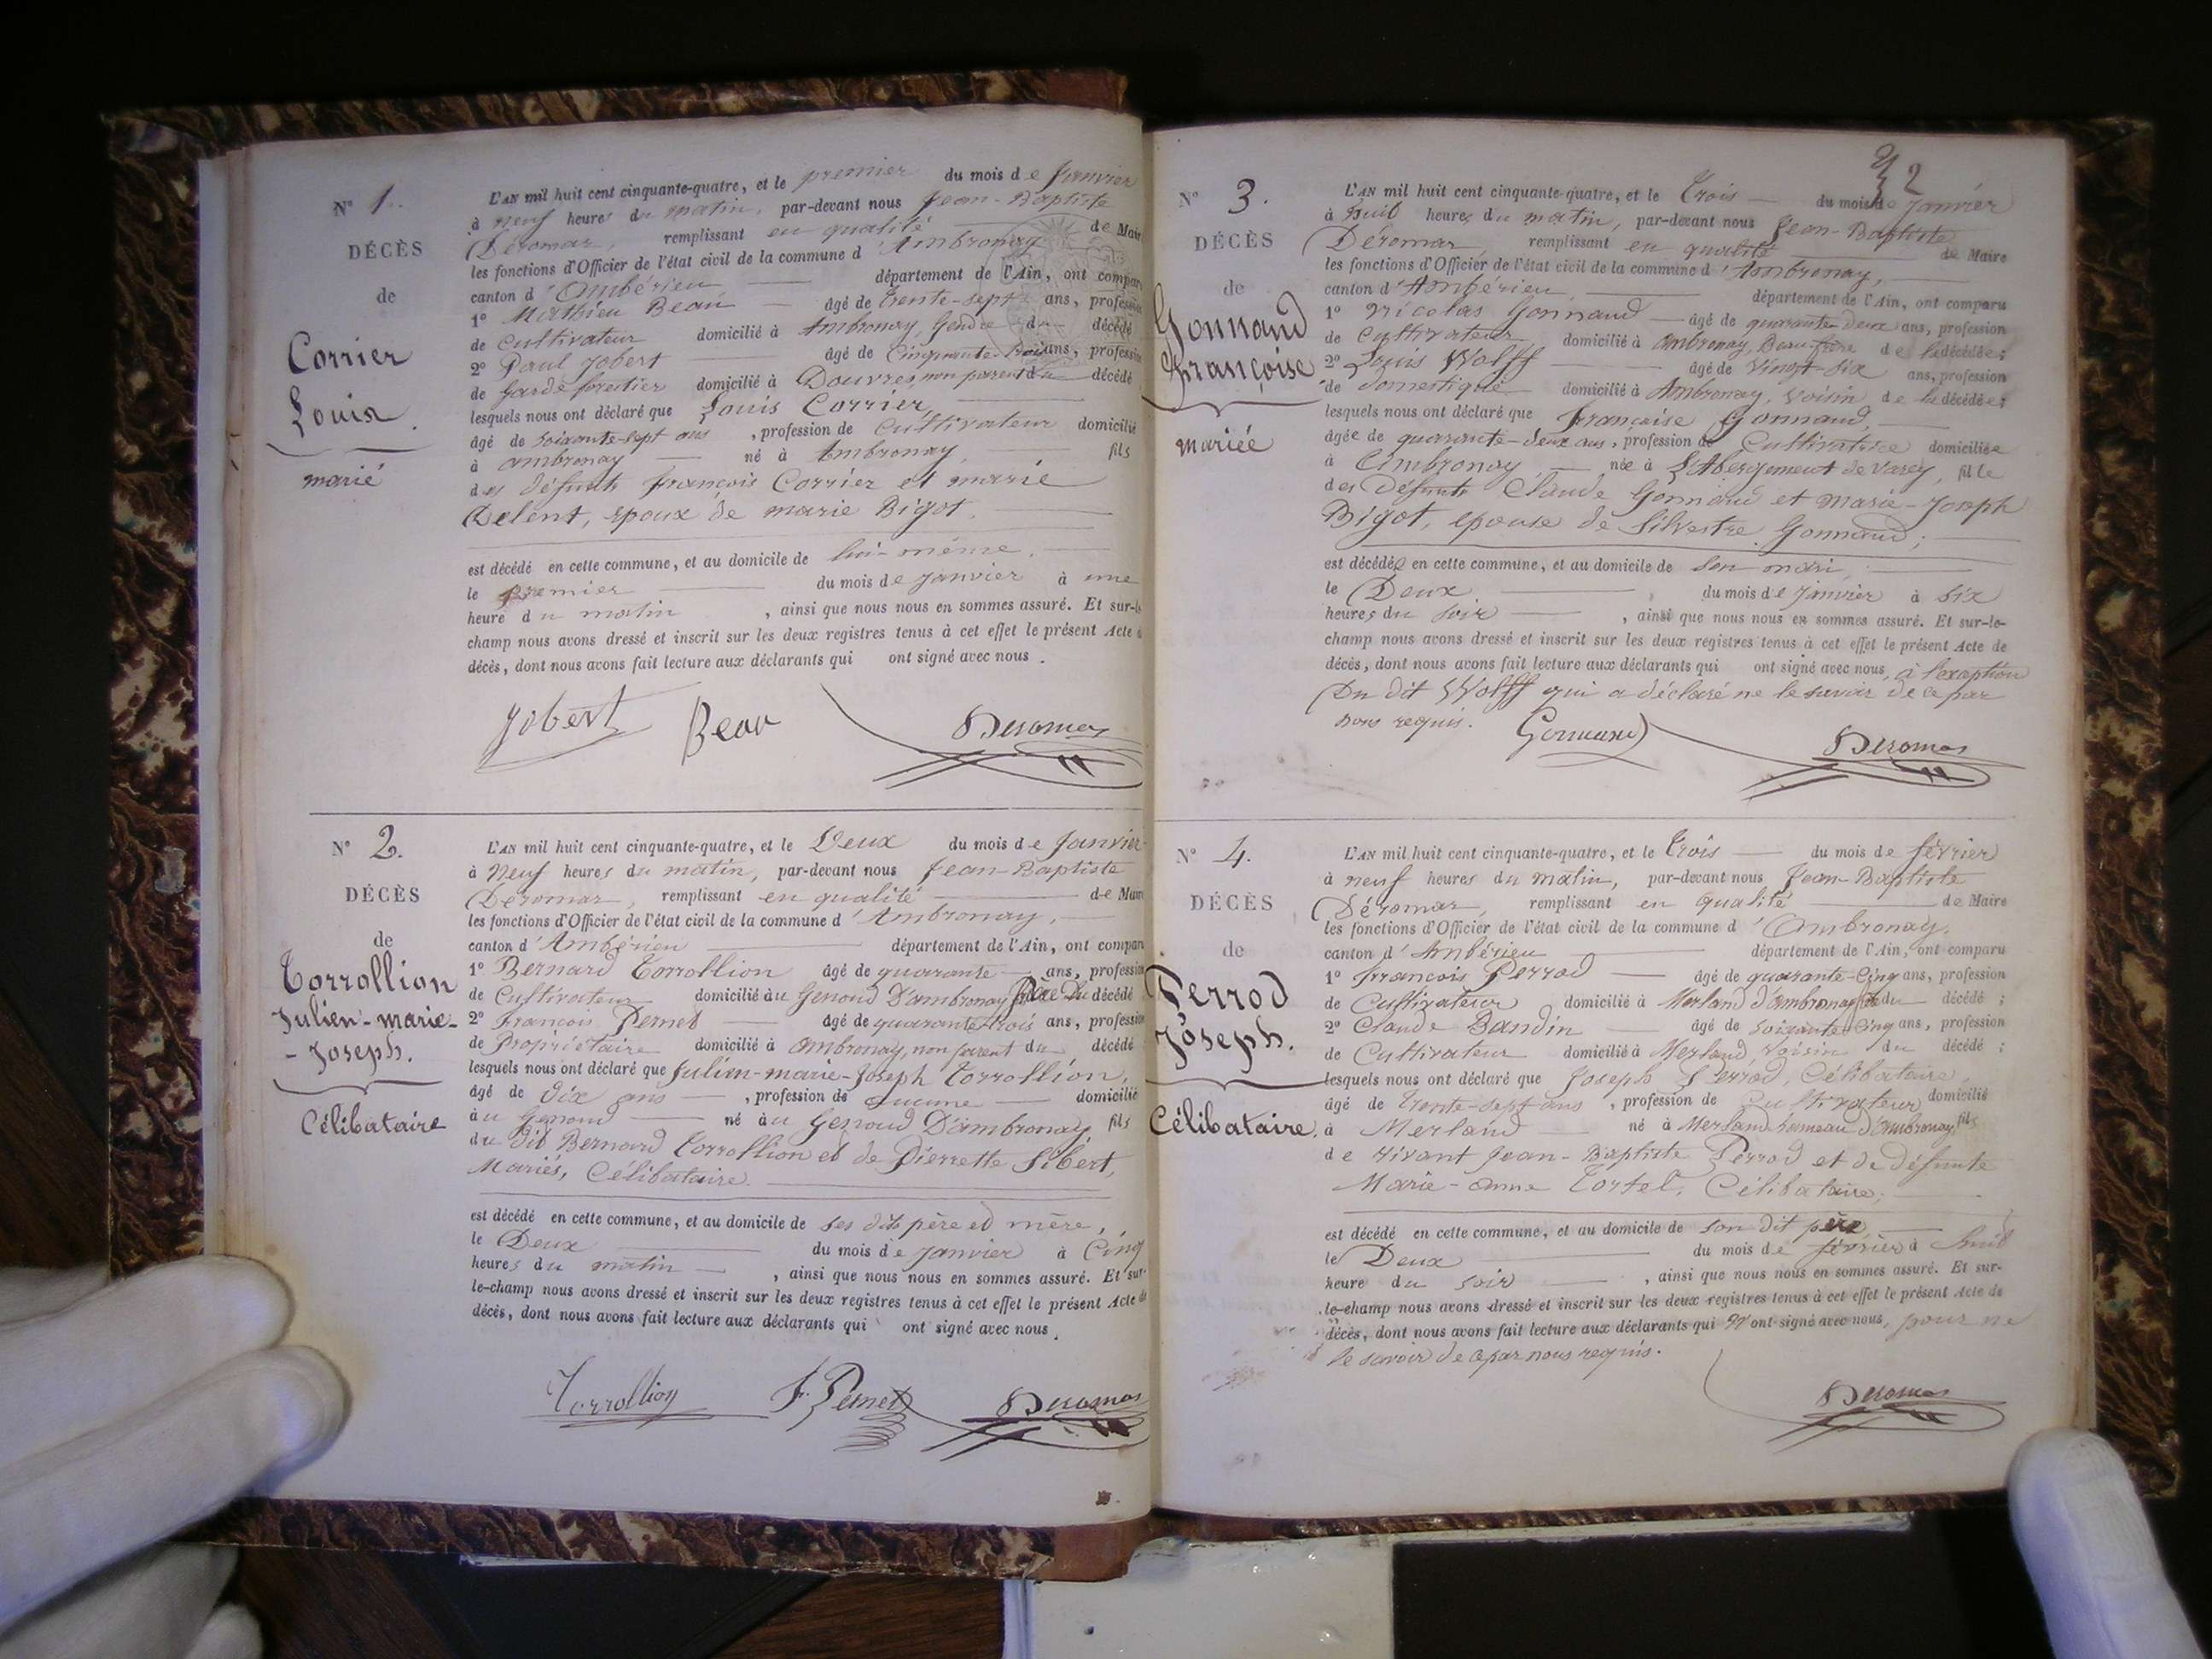 N° 1.
DÉCÈS
de
Corrier
Louis.
marié
L'AN mil huit cent cinquante-quatre, et le premier du mois de Janvier
à neuf heures du matin, par-devant nous Jean-Baptiste
Déromas, remplissant en qualité de Maire
les fonctions d'Officier de l'état civil de la commune d'Ambronay
canton d'Ambérieu département de l'Ain, ont comparu
1° Mathieu Beau âgé de trente-sept ans, profession
de Cultivateur domicilié à Ambronay, Gendre du décédé
2° Paul Jobert âgé de Cinquante-trois ans, profession
de garde forestier domicilié à Douvres, non parent du décédé
lesquels nous ont déclaré que Louis Corrier,
âgé de soixante-sept ans, profession de Cultivateur domicilié
à ambronay né à Ambronay, fils
des défunts françois Corrier et marie
Delent, époux de marie Bigot.
est décédé en cette commune, et au domicile de lui-même.
le premier du mois de Janvier à une
heure du matin, ainsi que nous nous en sommes assuré. Et sur-le-
champ nous avons dressé et inscrit sur les deux registres tenus à cet effet le présent Acte de
décès, dont nous avons fait lecture aux déclarants qui ont signé avec nous.
Jobert Beau Deromas
N° 2.
DÉCÈS
de
Torrollion
Julien-marie-
-Joseph.
Célibataire
L'AN mil huit cent cinquante-quatre, et le Deux du mois de Janvier
à Neuf heures du matin, par-devant nous Jean-Baptiste
Déromas, remplissant en qualité de Maire
les fonctions d'Officier de l'état civil de la commune d'Ambronay,
canton d'Ambérieu département de l'Ain, ont comparu
1° Bernard Torrollion âgé de quarante ans, profession
de Cultivateur domicilié au Genoud D'ambronay Père du décédé
2° François Pernet âgé de quarante-trois ans, profession
de Propriétaire domicilié à ambronay, non parent du décédé
lesquels nous ont déclaré que Julien-marie-Joseph Torrollion,
âgé de dix ans, profession de Aucune domicilié
au Genoud né au Genoud D'ambronay, fils
du dit Bernard Torrollion et de Pierrette Sibert,
Mariés, Célibataire.
est décédé en cette commune, et au domicile de ses dits père et mère,
le Deux du mois de Janvier à Cinq
heures du matin, ainsi que nous nous en sommes assuré. Et sur-
le-champ nous avons dressé et inscrit sur les deux registres tenus à cet effet le présent Acte de
décès, dont nous avons fait lecture aux déclarants qui ont signé avec nous.
Torrollion F. Pernet Deromas
2
N° 3.
DÉCÈS
de
Gonnaud
Françoise
mariée
L'AN mil huit cent cinquante-quatre, et le Trois du mois de Janvier
à huit heures du matin, par-devant nous Jean-Baptiste
Déromas, remplissant en qualité de Maire
les fonctions d'Officier de l'état civil de la commune d'Ambronay,
canton d'Ambérieu, département de l'Ain, ont comparu
1° Nicolas Gonnaud âgé de quarante-deux ans, profession
de Cultivateur domicilié à ambronay, Beau-frère de la décédée;
2° Louis Wolff âgé de Vingt-six ans, profession
de domestique domicilié à Ambronay, Voisin de la décédée;
lesquels nous ont déclaré que françoise Gonnaud,
âgée de quarante-deux ans, profession de Cultivatrice domiciliée
à Ambronay, née à L'Abergement de Varey, fille
des Défunts Claude Gonnaud et Marie-Joseph
Bigot, épouse de Silvestre Gonnaud;
est décédée en cette commune, et au domicile de son mari,
le Deux du mois de Janvier à Six
heures du soir, ainsi que nous nous en sommes assuré. Et sur-le-
champ nous avons dressé et inscrit sur les deux registres tenus à cet effet le présent Acte de
décès, dont nous avons fait lecture aux déclarants qui ont signé avec nous, à l'exception
Du dit Wolff qui a déclaré ne le savoir de ce par
nous requis. Gonnaud Deromas
N° 4.
DÉCÈS
de
Perrod
Joseph.
Célibataire.
L'AN mil huit cent cinquante-quatre, et le Trois du mois de février
à neuf heures du matin, par-devant nous Jean-Baptiste
Déromas, remplissant en qualité de Maire
les fonctions d'Officier de l'état civil de la commune d'Ambronay,
canton d'Ambérieu département de l'Ain, ont comparu
1° françois Perrod âgé de quarante-Cinq ans, profession
de Cultivateur domicilié à Merland d'ambronay du décédé;
2° Claude Bandin âgé de soixante-Cinq ans, profession
de Cultivateur domicilié à Merland, Voisin du décédé;
lesquels nous ont déclaré que Joseph Perrod, Célibataire,
âgé de trente-sept ans, profession de Cultivateur domicilié
à Merland né à Merland hameau d'Ambronay, fils
de vivant Jean-Baptiste Perrod et de défunte
Marie-Anne Tortel, Célibataire;
est décédé en cette commune, et au domicile de son dit père
le Deux du mois de février à huit
heure du soir, ainsi que nous nous en sommes assuré. Et sur-
le-champ nous avons dressé et inscrit sur les deux registres tenus à cet effet le présent Acte de
décès, dont nous avons fait lecture aux déclarants qui n'ont signé avec nous, pour ne
le savoir de ce par nous requis.
Deromas